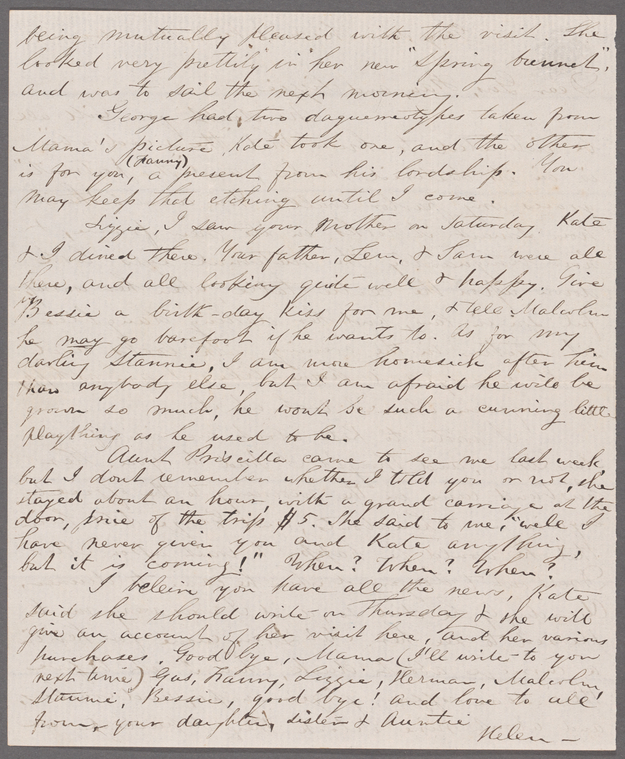 being mutually pleased with the visit. She
looked very prettily in her new "Spring bunnet",
and was to sail the next morning.
George had two daguerreotypes taken from
Mama's picture, Kate took one, and the other
is for you, (Fanny) a present from his lordship. You
may keep that etching until I come.
Lizzie, I saw your Mother on Saturday. Kate
& I dined there. Your father, Lem, & Sam were all
there, and all looking quite well & happy. Give
Bessie a birth-day kiss for me, & tell Malcolm
he may go barefoot if he wants to. As for my
darling Stannie, I am more homesick after him
than anybody else, but I am afraid he will be
grown so much, he wont be such a cunning little
plaything as he used to be.
Aunt Priscilla came to see me last week,
but I dont remember whether I told you or not, she
stayed about an hour, with a grand carriage at the
door, price of the trip $5. She said to me, "well I
have never given you and Kate anything,
but it is coming!" When? When? When?
I beleive you have all the news, Kate
said she should write on Thursday & she will
give an account of her visit here, and her various
purchases. Good bye, Mama (I'll write to you
next time) Gus, Fanny, Lizzie, Herman, Malcolm,
Stannie, Bessie, good bye! and love to all
from, your daughter, sister & Auntie
Helen —